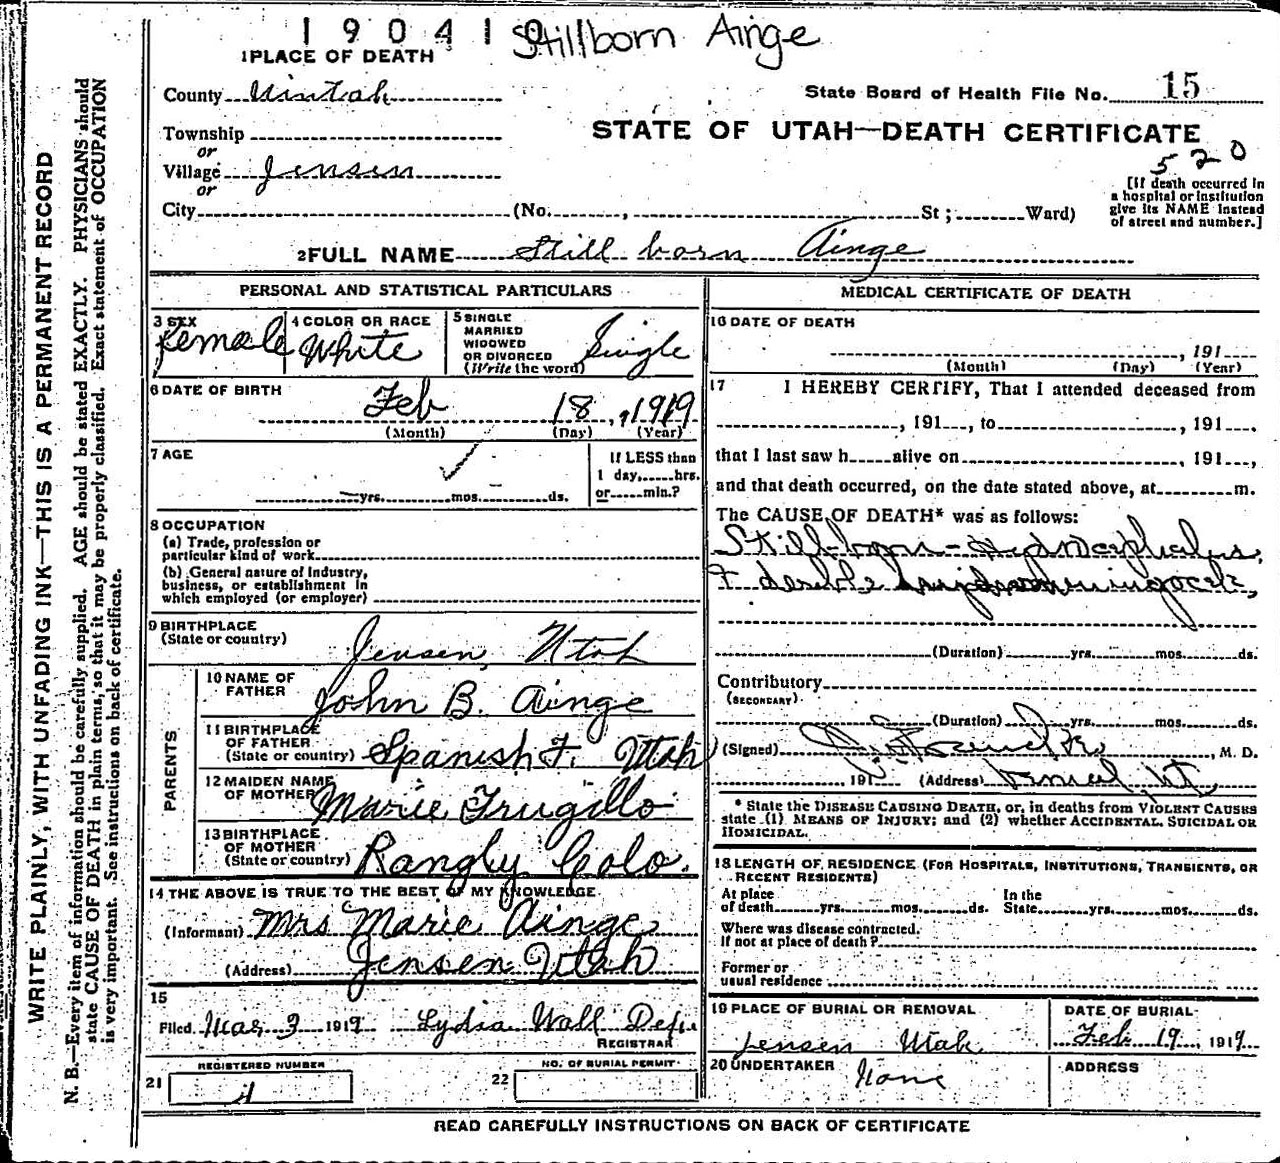 190410 Stillborn Ainge
1 PLACE OF DEATH
County Uintah
State Board of Health File No. 15
Township
or
STATE OF UTAH—DEATH CERTIFICATE
520
Village Jensen
or
City (No. , St ; Ward)
[If death occurred in
a hospital or institution
give its NAME instead
of street and number.]
2 FULL NAME Still born Ainge
PERSONAL AND STATISTICAL PARTICULARS
3 SEX Female
4 COLOR OR RACE White
5 SINGLE
MARRIED
WIDOWED
OR DIVORCED
(Write the word) Single
6 DATE OF BIRTH
Feb 18, 1919
(Month) (Day) (Year)
7 AGE
yrs. mos. ds.
If LESS than
1 day, hrs.
or min.?
8 OCCUPATION
(a) Trade, profession or
particular kind of work
(b) General nature of Industry,
business, or establishment in
which employed (or employer)
9 BIRTHPLACE
(State or country) Jensen, Utah
PARENTS
10 NAME OF
FATHER John B. Ainge
11 BIRTHPLACE
OF FATHER
(State or country) Spanish F. Utah
12 MAIDEN NAME
OF MOTHER Marie Trugillo
13 BIRTHPLACE
OF MOTHER
(State or country) Rangly Colo.
14 THE ABOVE IS TRUE TO THE BEST OF MY KNOWLEDGE
(Informant) Mrs Marie Ainge
(Address) Jensen Utah
15
Filed Mar 3 1919 Lydia Wall Dep.
REGISTRAR
REGISTERED NUMBER
21
NO. OF BURIAL PERMIT
22
MEDICAL CERTIFICATE OF DEATH
16 DATE OF DEATH
, 191
(Month) (Day) (Year)
17 I HEREBY CERTIFY, That I attended deceased from
, 191 , to , 191 .
that I last saw h alive on , 191 ,
and that death occurred, on the date stated above, at m.
The CAUSE OF DEATH* was as follows:
Still-born - Hydrocephalus,
(Duration) yrs. mos. ds.
Contributory
(SECONDARY)
(Duration) yrs. mos. ds.
(Signed) , M. D.
191 (Address) Ut
* State the DISEASE CAUSING DEATH, or, in deaths from VIOLENT CAUSES
state (1) MEANS OF INJURY; and (2) whether ACCIDENTAL, SUICIDAL OR
HOMICIDAL.
18 LENGTH OF RESIDENCE (FOR HOSPITALS, INSTITUTIONS, TRANSIENTS, OR
RECENT RESIDENTS)
At place
of death yrs. mos. ds.
In the
State yrs. mos. ds.
Where was disease contracted,
if not at place of death?
Former or
usual residence
19 PLACE OF BURIAL OR REMOVAL
Jensen Utah
DATE OF BURIAL
Feb 19, 1919
20 UNDERTAKER
None
ADDRESS
READ CAREFULLY INSTRUCTIONS ON BACK OF CERTIFICATE
WRITE PLAINLY, WITH UNFADING INK—THIS IS A PERMANENT RECORD
N. B.—Every item of information should be carefully supplied. AGE should be stated EXACTLY. PHYSICIANS should
state CAUSE OF DEATH in plain terms, so that it may be properly classified. Exact statement of OCCUPATION
is very important. See instructions on back of certificate.